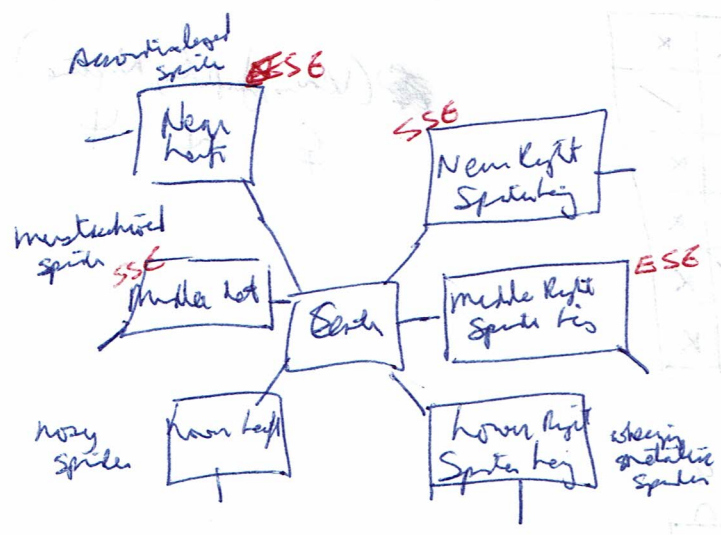 spider
ESE
Near
Left
SSE
Near Right
Spider Leg
Moustachioed
spider
SSE
Middle Left
ESE
Middle Right
Spider Leg
nosy
spider
Lower Left
Lower Right
Spider Leg
wheezing
spider